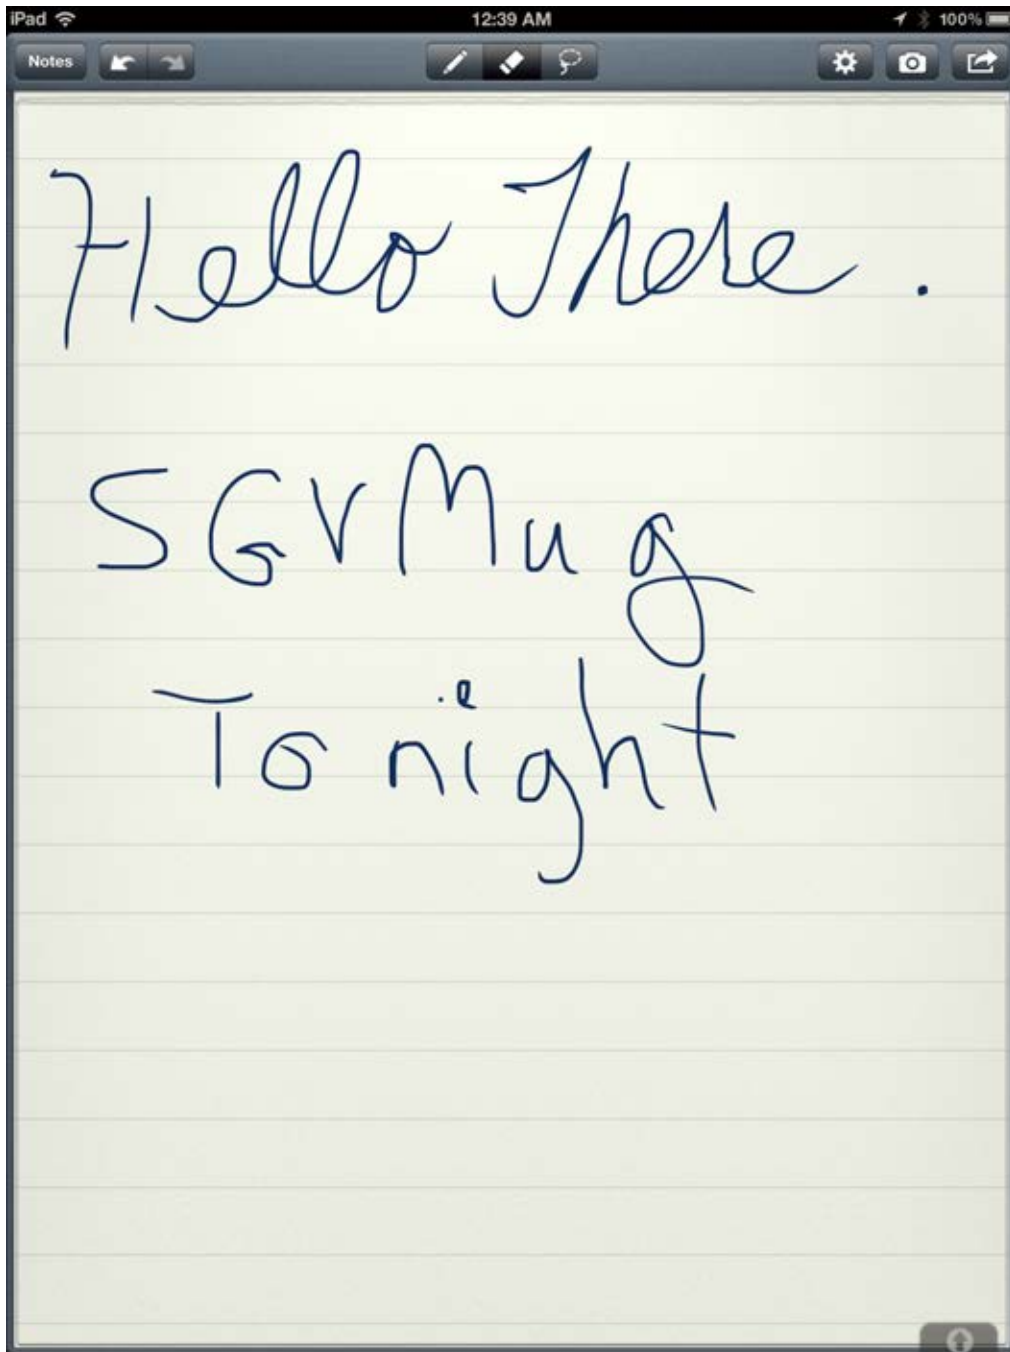 iPad 12:39 AM 100%
Notes
Hello There.
SGVMug
Tonight